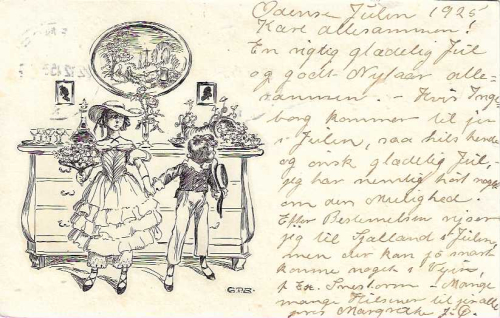 Odense Julen 1925
Kære allesammen!
En rigtig glædelig Jul
og godt Nytaar alle-
sammen. - Hvis Inge
borg kommer til jer
i Julen, saa hils hende
og ønsk glædelig Jul,
jeg har nemlig hørt noget
om den Mulighed.
Efter Bestemmelsen rejser
jeg til Sjælland i Julen,
men der kan jo snart
komme noget i Vejen,
f. Ex. Snestorm - Mange
mange Hilsener til jer alle
fra Margrethe